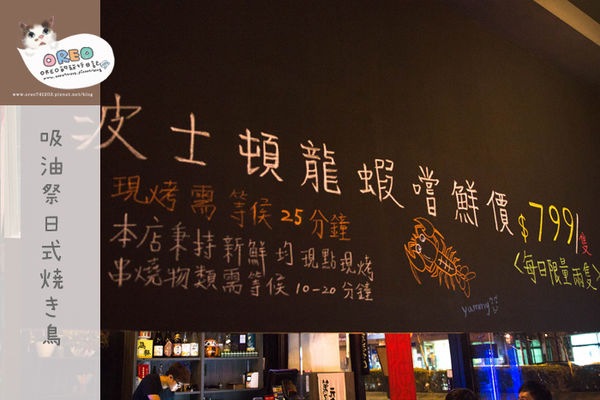 OREO
OREO的旅行日記
www.oreo741203.pixnet.net/blog
吸油祭日式燒き鳥
波士頓龍蝦嚐鮮價$799/隻
<每日限量兩隻>
現烤需等侯25分鐘
本店秉持新鮮均現點現烤
串燒物類需等侯10-20分鐘
yummy